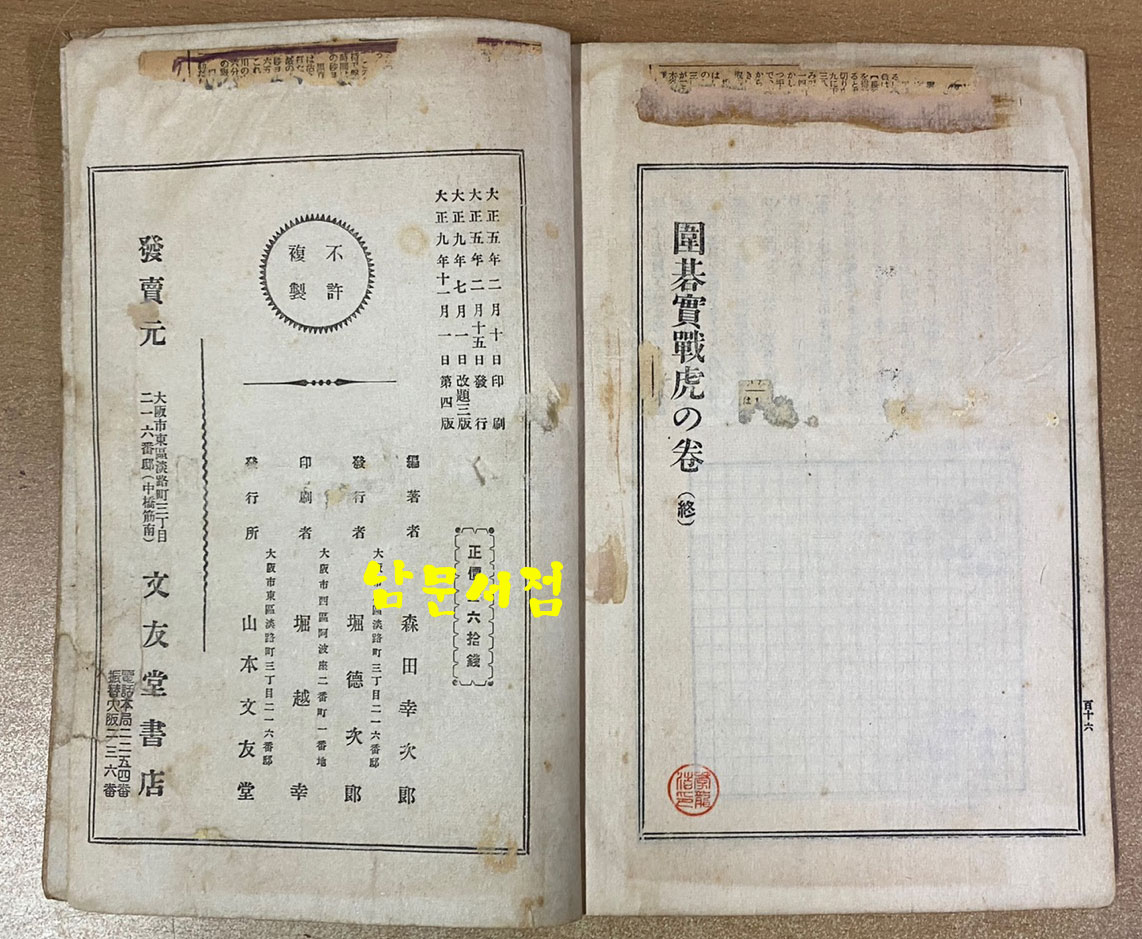 圍碁實戰虎の卷
(終)
百十六
大正五年二月十日印刷
大正五年二月十五日發行
大正九年七月一日改題三版
大正九年十一月一日第四版
不許
複製
正價
六拾錢
編著者 森田幸次郎
大阪市東區淡路町三丁目二一六番邸
發行者 堀德次郎
大阪市西區阿波座二番町一番地
印刷者 堀越幸
大阪市東區淡路町三丁目二一六番邸
發行所 山本文友堂
發賣元
大阪市東區淡路町三丁目
二一六番邸(中橋筋南)
文友堂書店
電話本局二二五四番
振替大阪二三六番
남문서점